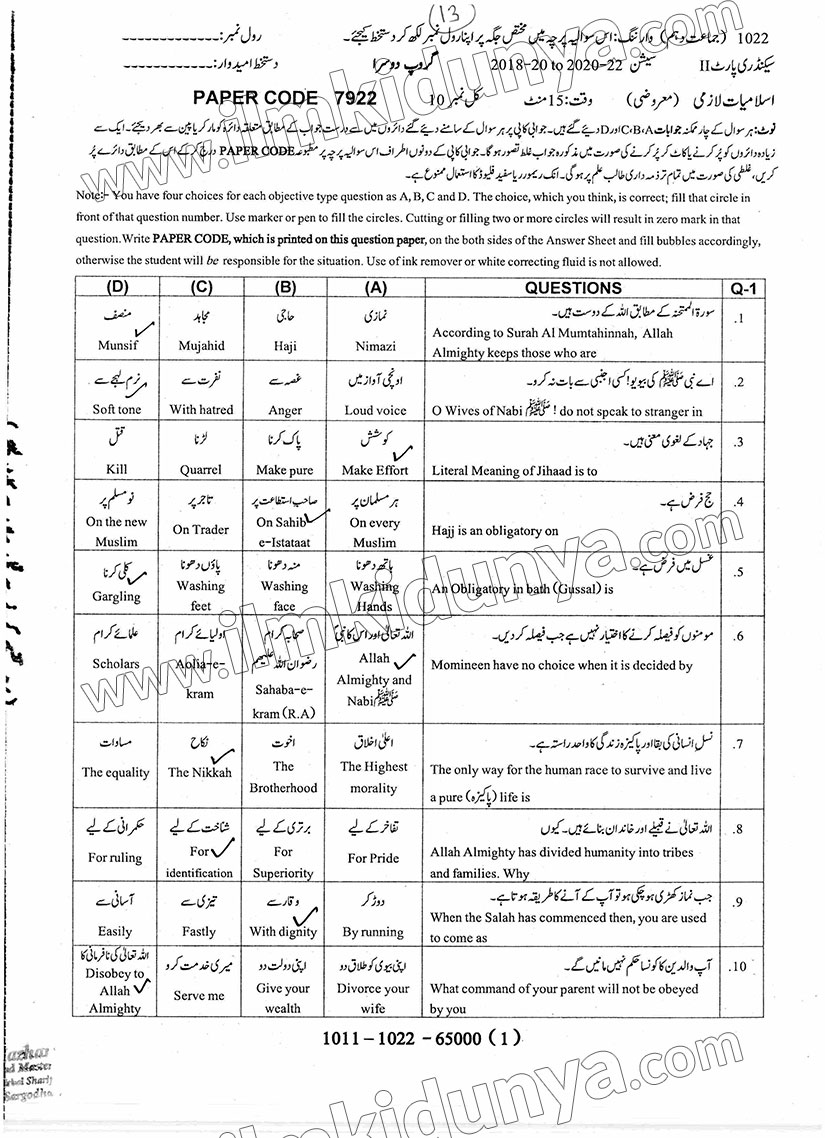 (13)
1022 (جماعت دہم) وارننگ: اس سوالیہ پرچہ میں مختص جگہ پر اپنا رول نمبر لکھ کر دستخط کیجئے۔ رول نمبر: -------------
سیکنڈری پارٹ II سیشن 2018-20 to 2020-22 گروپ دوسرا دستخط امیدوار: -------------
اسلامیات لازمی (معروضی) وقت: 15 منٹ کل نمبر 10 PAPER CODE 7922
نوٹ: ہر سوال کے چار ممکنہ جوابات A،B،C اور D دیئے گئے ہیں۔ جوابی کاپی پر ہر سوال کے سامنے دیئے گئے دائروں میں سے درست جواب کے مطابق متعلقہ دائرہ کو مارکر یا پین سے بھر دیجئے۔ ایک سے
زیادہ دائروں کو پُر کرنے یا کاٹ کر پُر کرنے کی صورت میں مذکورہ جواب غلط تصور ہوگا۔ جوابی کاپی کے دونوں اطراف اس سوالیہ پرچہ پر مطبوعہ PAPER CODE درج کر کے اس کے مطابق دائرے پُر
کریں، غلطی کی صورت میں تمام تر ذمہ داری طالب علم پر ہوگی۔ انک ریموور یا سفید فلیوڈ کا استعمال ممنوع ہے۔
Note:- You have four choices for each objective type question as A, B, C and D. The choice, which you think, is correct; fill that circle in
front of that question number. Use marker or pen to fill the circles. Cutting or filling two or more circles will result in zero mark in that
question.Write PAPER CODE, which is printed on this question paper, on the both sides of the Answer Sheet and fill bubbles accordingly,
otherwise the student will be responsible for the situation. Use of ink remover or white correcting fluid is not allowed.
(D) (C) (B) (A) QUESTIONS Q-1
منصف مجاہد حاجی نمازی سورۃ الممتحنہ کے مطابق اللہ کے دوست ہیں۔ .1
Munsif Mujahid Haji Nimazi According to Surah Al Mumtahinnah, Allah
Almighty keeps those who are
نرم لہجے سے نفرت سے غصہ سے اونچی آواز میں اے نبی ﷺ کی بیویو! کسی اجنبی سے بات نہ کرو۔ .2
Soft tone With hatred Anger Loud voice O Wives of Nabi ﷺ ! do not speak to stranger in
قتل لڑنا پاک کرنا کوشش جہاد کے لغوی معنی ہیں۔ .3
Kill Quarrel Make pure Make Effort Literal Meaning of Jihaad is to
نو مسلم پر تاجر پر صاحب استطاعت پر ہر مسلمان پر حج فرض ہے۔ .4
On the new On Trader On Sahib On every Hajj is an obligatory on
Muslim e-Istataat Muslim
کلی کرنا پاؤں دھونا منہ دھونا ہاتھ دھونا غسل میں فرض ہے۔ .5
Gargling Washing Washing Washing An Obligatory in bath (Gussal) is
feet face Hands
علمائے کرام اولیائے کرام صحابہ کرام رضوان اللہ علیہم اللہ تعالیٰ اور اس کا نبی مومنوں کو فیصلہ کرنے کا اختیار نہیں ہے جب فیصلہ کر دیں۔ .6
Scholars Aolia-e- Sahaba-e- Allah Momineen have no choice when it is decided by
kram kram (R.A) Almighty and
Nabi ﷺ
مساوات نکاح اخوت اعلیٰ اخلاق نسل انسانی کی بقا اور پاکیزہ زندگی کا واحد راستہ ہے۔ .7
The equality The Nikkah The The Highest The only way for the human race to survive and live
Brotherhood morality a pure (پاکیزہ) life is
حکمرانی کے لیے شناخت کے لیے برتری کے لیے تفاخر کے لیے اللہ تعالیٰ نے قبیلے اور خاندان بنائے ہیں۔ کیوں .8
For ruling For For For Pride Allah Almighty has divided humanity into tribes
identification Superiority and families. Why
آسانی سے تیزی سے وقار سے دوڑ کر جب نماز کھڑی ہو چکی ہو تو آپ کے آنے کا طریقہ ہوتا ہے۔ .9
Easily Fastly With dignity By running When the Salah has commenced then, you are used
to come as
اللہ تعالیٰ کی نافرمانی کا میری خدمت کرو اپنی دولت دو اپنی بیوی کو طلاق دو آپ والدین کا کونسا حکم نہیں مانیں گے۔ .10
Disobey to Serve me Give your Divorce your What command of your parent will not be obeyed
Allah wealth wife by you
Almighty
1011 – 1022 – 65000 ( 1 )
Sargodha
www.ilmkidunya.com
www.ilmkidunya.com
www.ilmkidunya.com
ilmkidunya.com